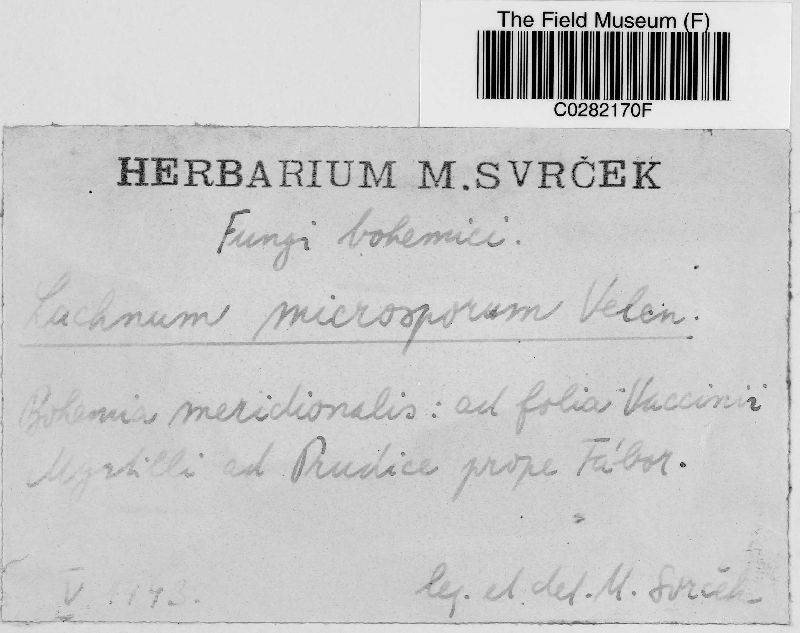 The Field Museum (F)
C0282170F
HERBARIUM M. SVRČEK
Fungi bohemici.
Lachnum microsporum Velen.
Bohemia meridionalis: ad folia Vaccinii
Myrtilli ad Prudice prope Tábor.
leg. et det. M. Svrček
V.